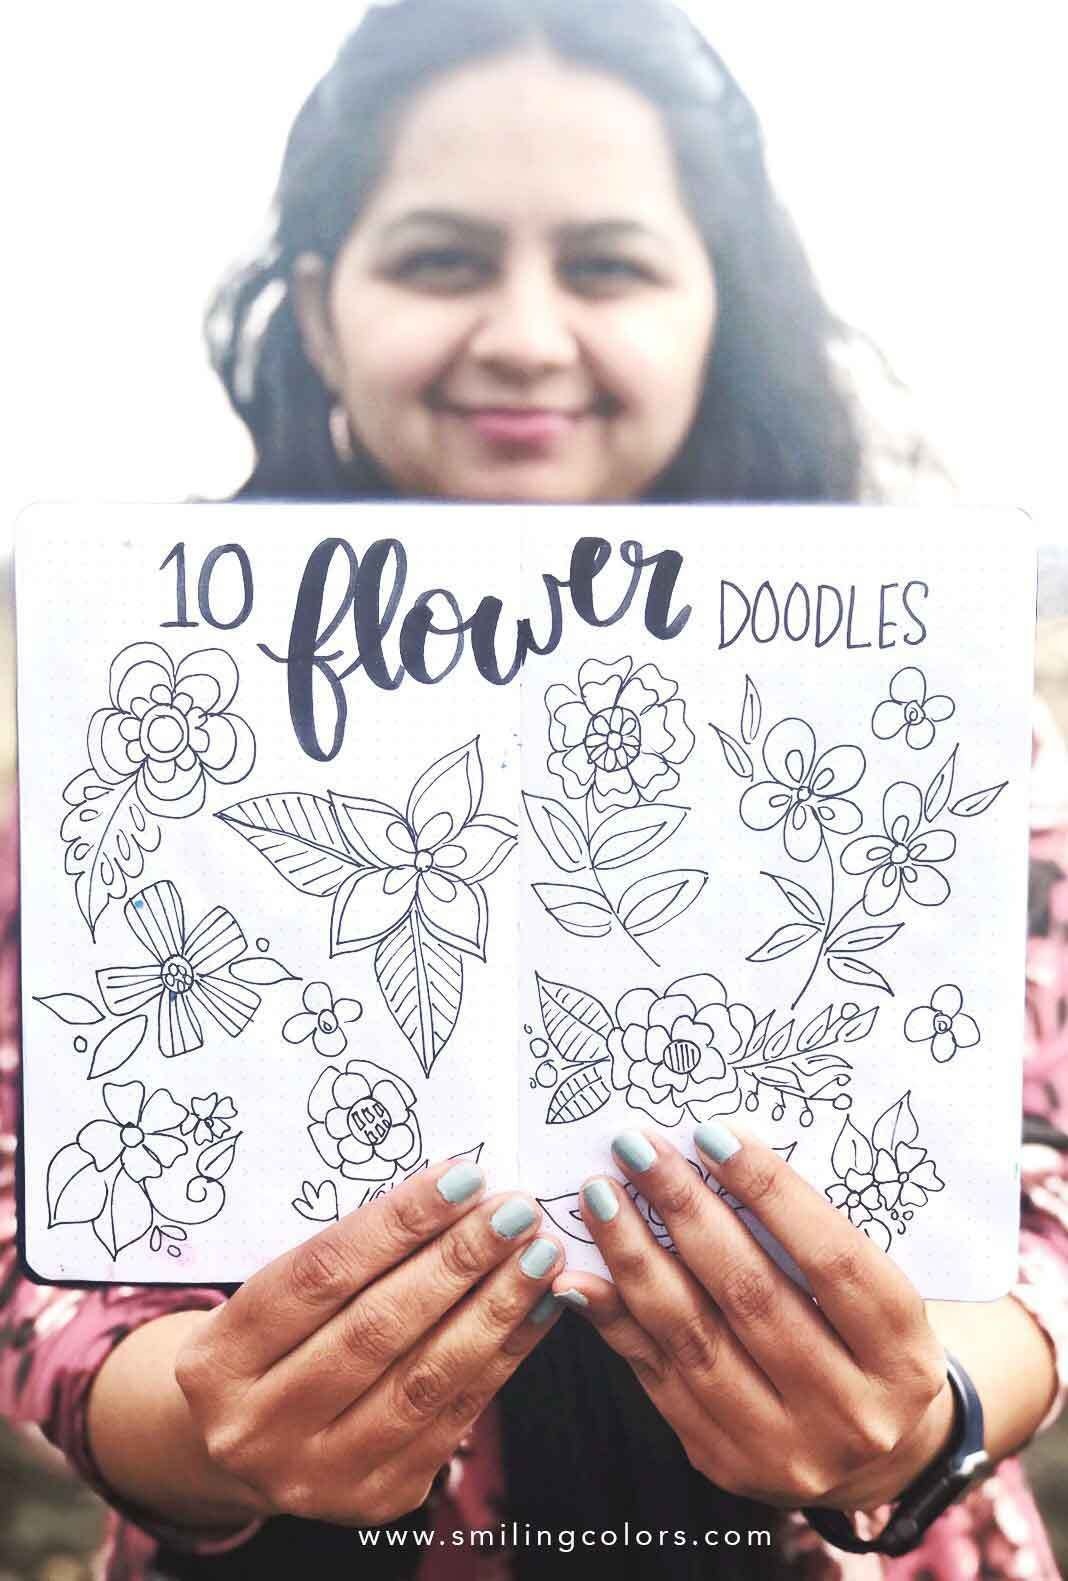 10 flower DOODLES
www.smilingcolors.com